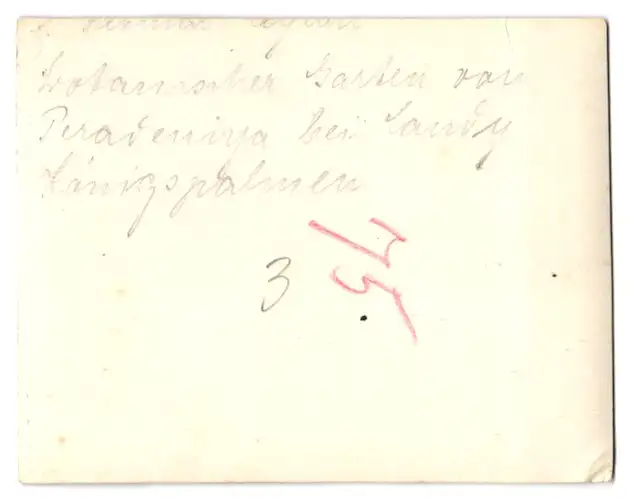 Ceylon
Botanischer Garten von
Peradeniya bei Candy
Königspalmen
3